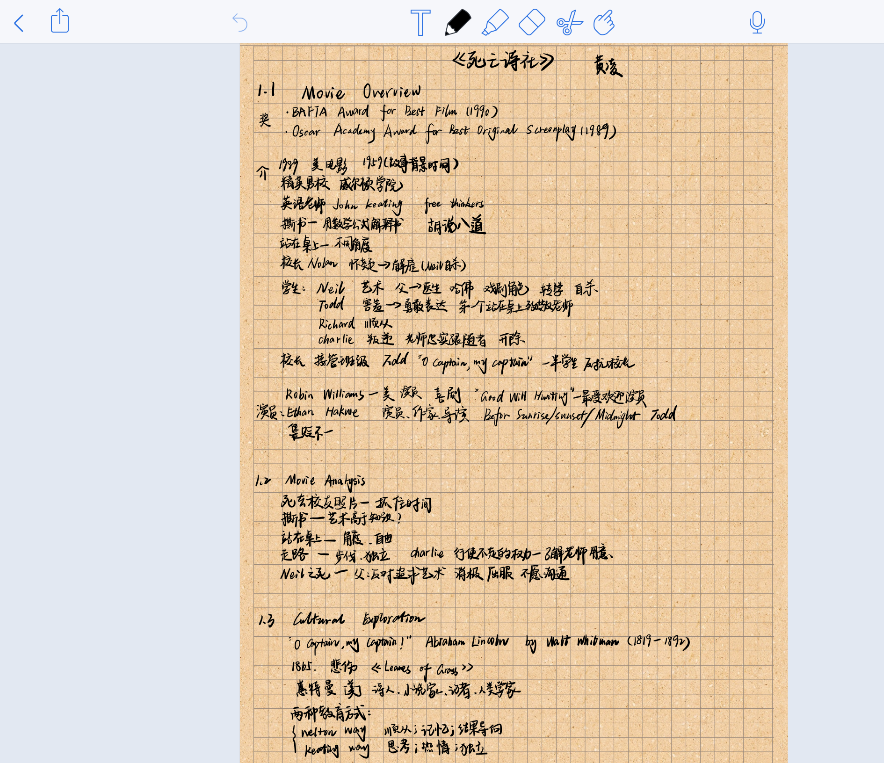 《死亡诗社》 黄凌
1.1 Movie Overview
奖 · BAFTA Award for Best Film (1990)
· Oscar Academy Award for Best Original Screenplay (1989)
介 1989 美电影 1959(故事背景时间)
精英男校 威尔顿学院
英语老师 John Keating free thinkers
撕书— 用数学公式解释书 胡说八道
站在桌上— 不同角度
校长 Nolan 怀疑→解雇(Neil自杀)
学生: Neil 艺术 父→医生 哈佛 戏剧角色 转学 自杀
Todd 害羞→勇敢表达 第一个站在桌上致敬老师
Richard 顺从
charlie 叛逆 老师忠实跟随者 开除
校长 接管班级 Todd "O Captain, my captain" 一半学生 反抗校长
Robin Williams—美 演员 喜剧 "Good Will Hunting"—最受欢迎演员
演员: Ethan Hakwe 演员、作家、导演 Befor Sunrise/sunset/Midnight Todd
1.2 Movie Analysis
死去校友照片— 抓住时间
撕书—艺术高于知识?
站在桌上— 角度、自由
走路 — 步伐、独立 charlie 行使不走的权力—了解老师用意、
Neil之死 — 父:反对追求艺术 消极 屈服 不愿沟通
1.3 Cultural Exploration
"O Captain, my Captain!" Abraham Lincoln by Walt Whitman (1819-1892)
1865. 悲伤 《Leaves of Grass》
惠特曼 美 诗人、小说家、记者、人类学家
两种教育方式:
nelton way 顺从;记忆;结果导向
keating way 思考;热情;独立